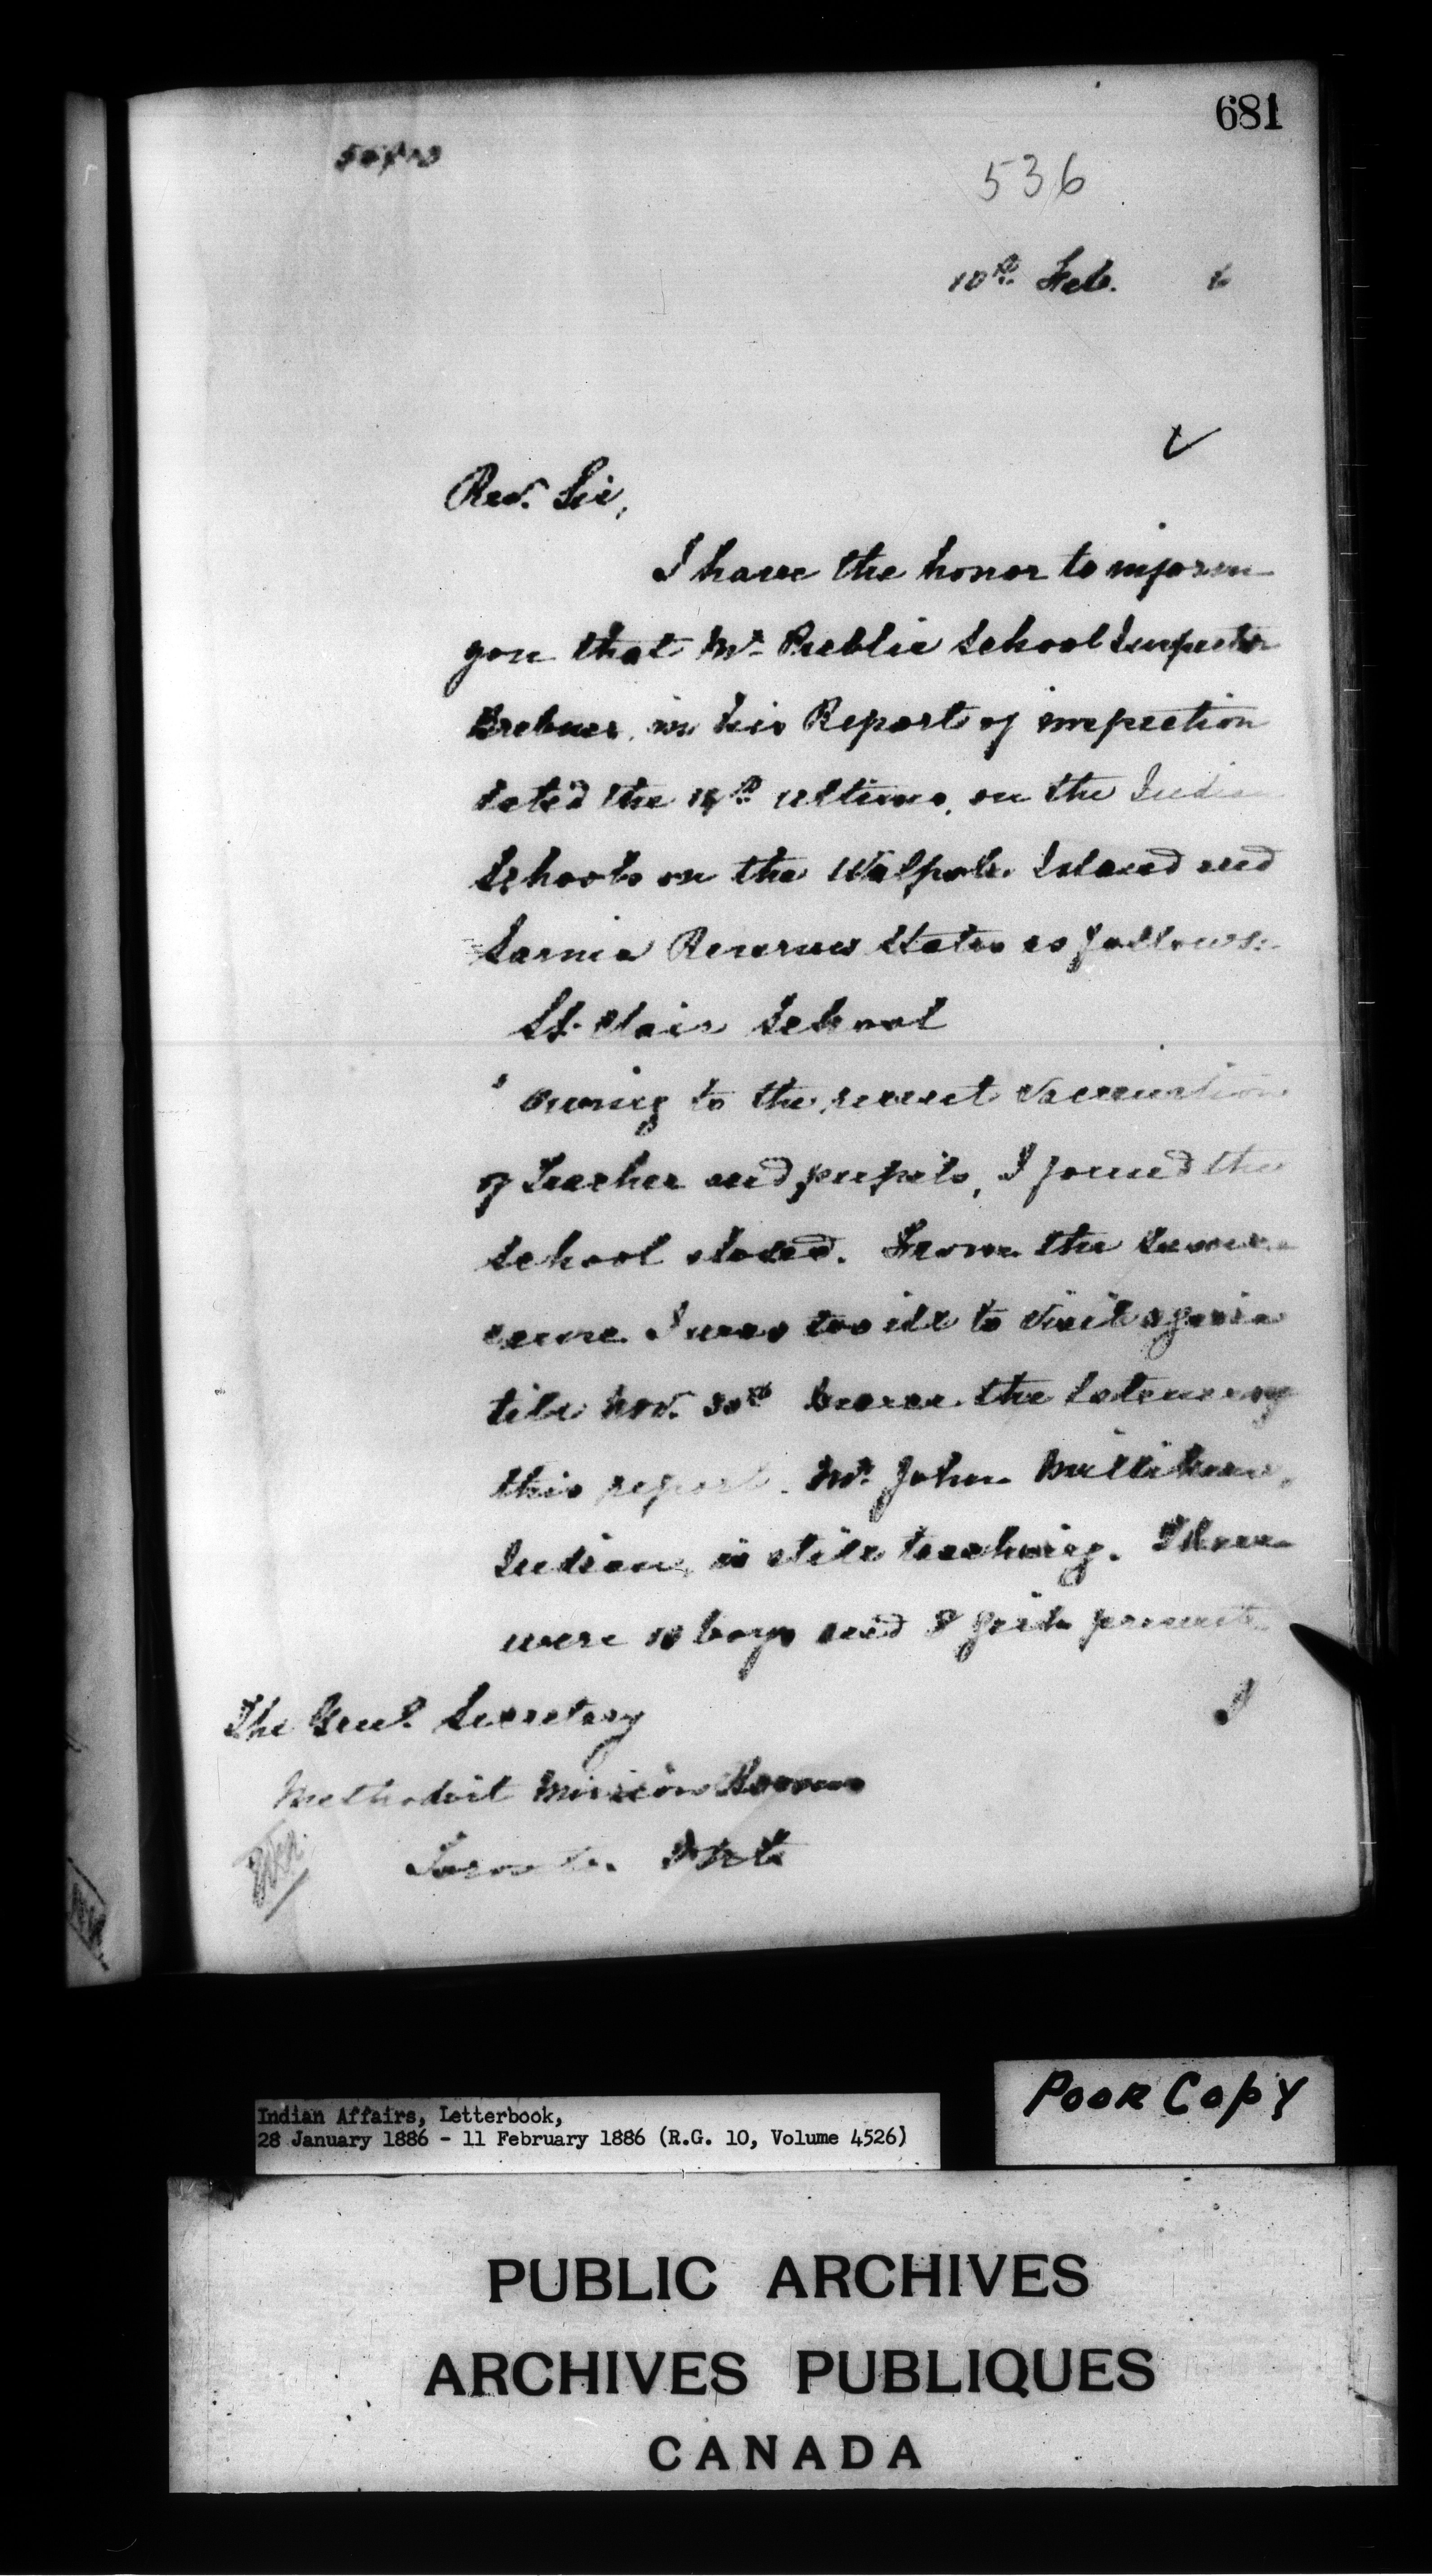 681
536
10th Feb. 6
Rev. Sir,
I have the honor to inform
you that Mr. Public School Inspector
Brebner, in his Report of inspection
dated the ultimo, on the Indian
Schools on the Walpole Island and
Sarnia Reserves states as follows:-
St. Clair School
" Owing to the recent vaccination
of Teacher and pupils, I found the
school closed. From the same
cause I was too ill to visit again
till Nov. 30th hence the lateness of
this report. Mr. John Milliken,
Indian, is still teaching. There
were 10 boys and 8 girls present.
I
The Genl. Secretary
Methodist Mission Rooms
Toronto. Ont.
Poor Copy
Indian Affairs, Letterbook,
28 January 1886 - 11 February 1886 (R.G. 10, Volume 4526)
PUBLIC ARCHIVES
ARCHIVES PUBLIQUES
CANADA